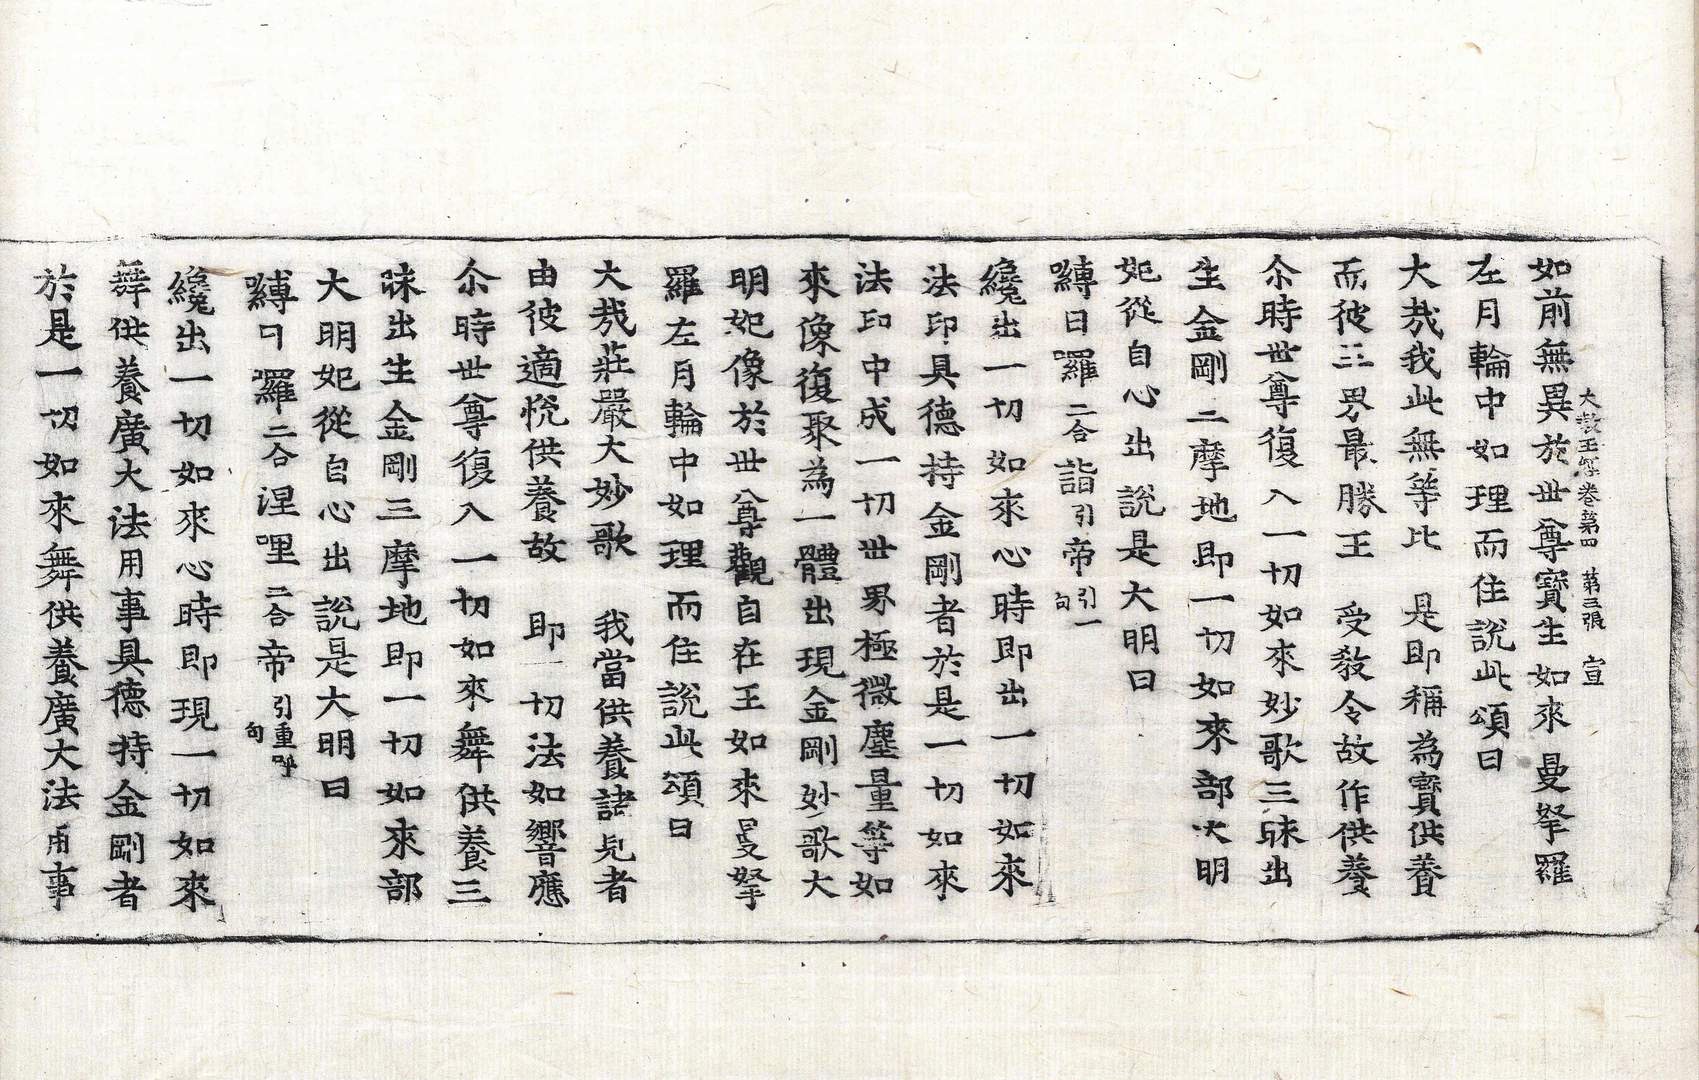 大教王經卷第四　第三張　宣
如前無異於世尊寶生如來曼拏羅
左月輪中如理而住說此頌曰
大哉我此無等比　是即稱為寶供養
而彼三界最勝王　受教令故作供養
尒時世尊復入一切如來妙歌三昧出
生金剛三摩地即一切如來部大明
妃從自心出說是大明曰
嚩日囉二合詣引帝引一句
纔出一切如來心時即出一切如來
法印具德持金剛者於是一切如來
法印中成一切世界極微塵量等如
來像復聚為一體出現金剛妙歌大
明妃像於世尊觀自在王如來曼拏
羅左月輪中如理而住說此頌曰
大哉莊嚴大妙歌　我當供養諸見者
由彼適悅供養故　即一切法如響應
尒時世尊復入一切如來舞供養三
昧出生金剛三摩地即一切如來部
大明妃從自心出說是大明曰
嚩日囉二合涅哩二合帝引重呼句
纔出一切如來心時即現一切如來
舞供養廣大法用事具德持金剛者
於是一切如來舞供養廣大法用事